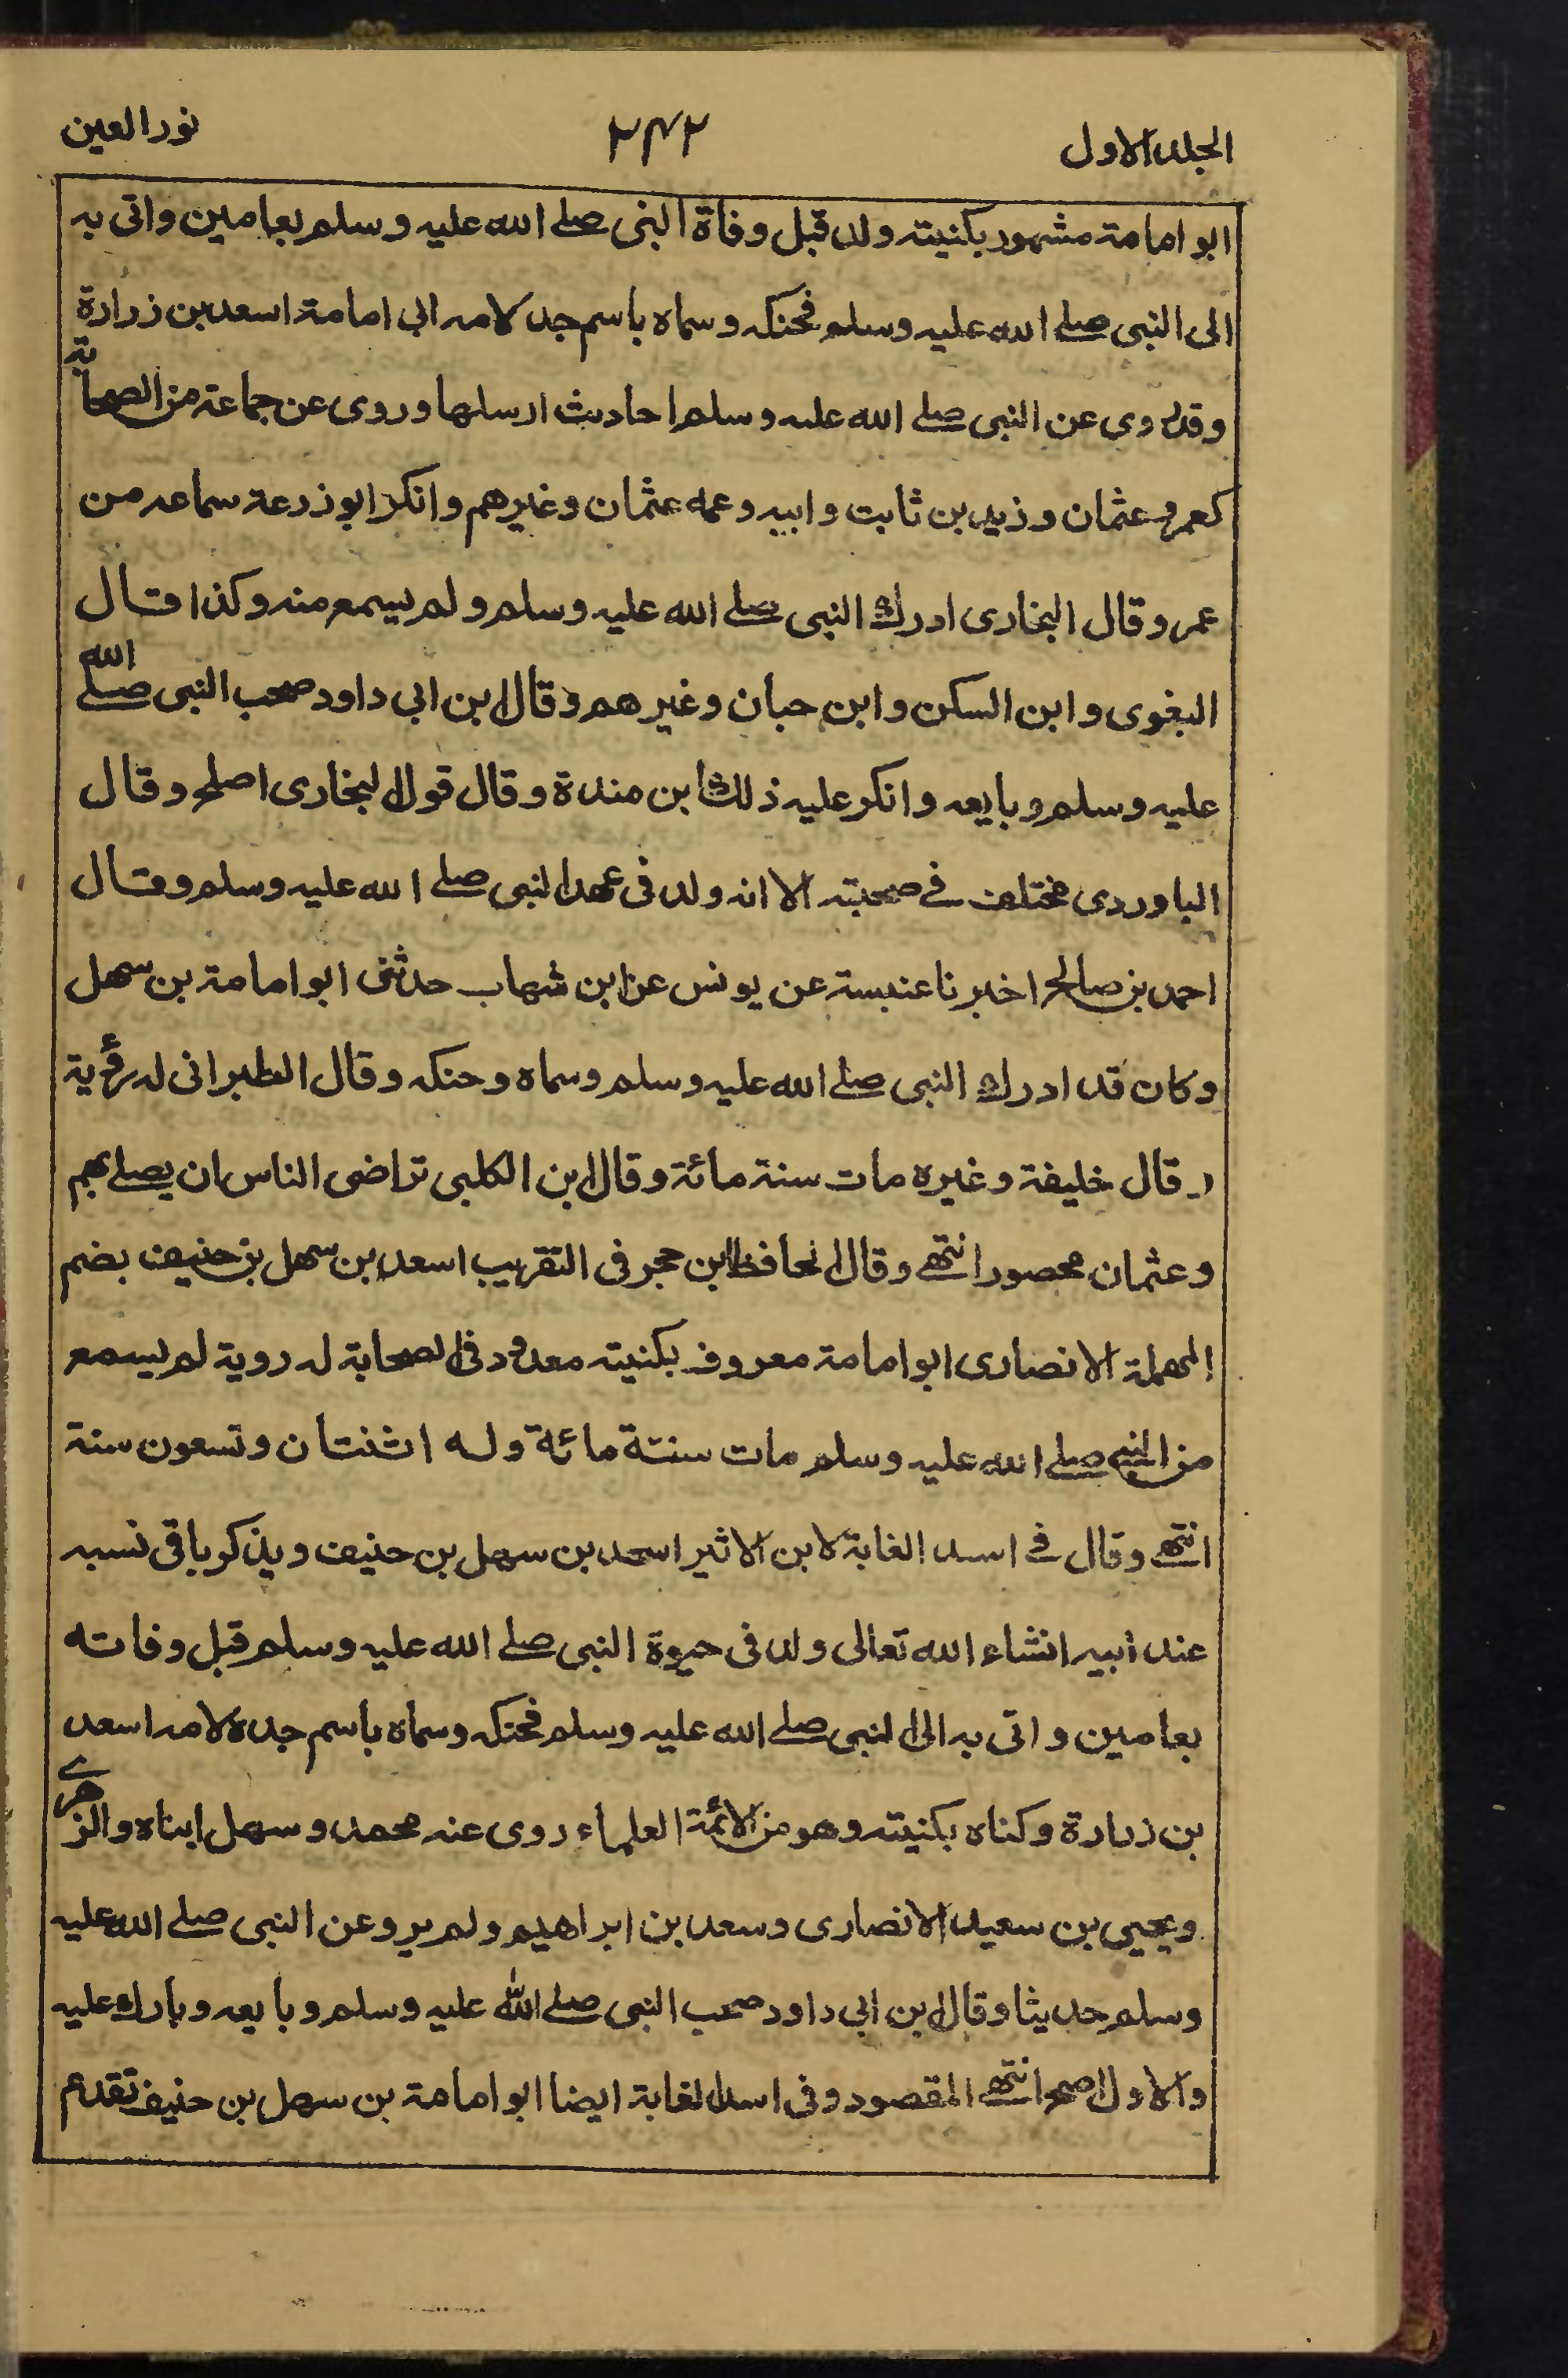 الجلد الاول ۲۴۲ نور العين
ابو امامة مشهور بكنيته ولد قبل وفاة النبى صلے الله عليه وسلم بعامين واتى به
الى النبى صلے الله عليه وسلم فحنكه وسماه باسم جد لامه ابى امامة اسعد بن زرارة
وقد روى عن النبى صلے الله عليه وسلم احاديث ارسلها وروى عن جماعة من الصحابة
كعمر وعثمان وزيد بن ثابت وابيه وعمه عثمان وغيرهم وانكر ابو زرعة سماعه من
عمر وقال البخارى ادرك النبى صلے الله عليه وسلم ولم يسمع منه وكذا قال
البغوى وابن السكن وابن حبان وغيرهم وقال ابن ابى داود صحب النبى صلے الله
عليه وسلم وبايعه وانكر عليه ذلك ابن مندة وقال قول البخارى اصلح وقال
الباوردى مختلف فے صحبته الا انه ولد فى عهد النبى صلے الله عليه وسلم وقال
احمد بن صالح اخبرنا عنبسة عن يونس عن ابن شهاب حدثنى ابو امامة بن سهل
وكان قد ادرك النبى صلے الله عليه وسلم وسماه وحنكه وقال الطبرانى له رؤية
وقال خليفة وغيره مات سنة مائة وقال ابن الكلبى تراضى الناس ان يصلے بهم
وعثمان محصور انتهے وقال الحافظ ابن حجر فى التقريب اسعد بن سهل بن حنيف بضم
المهملة الانصارى ابو امامة معروف بكنيته معدود فى الصحابة له روية لم يسمع
من النبے صلے الله عليه وسلم مات سنتة مائة وله اثنتان وتسعون سنة
انتهے وقال فے اسد الغابة لابن الاثير اسعد بن سهل بن حنيف ويذكر باقى نسبه
عند ابيه انشاء الله تعالى ولد فى حيوة النبى صلے الله عليه وسلم قبل وفاته
بعامين واتى به الى النبى صلے الله عليه وسلم فحنكه وسماه باسم جده لامه اسعد
بن زرارة وكناه بكنيته وهو من الائمة العلماء روى عنه محمد وسهل ابناه والزهرے
ويحيى بن سعيد الانصارى وسعد بن ابراهيم ولم يرو عن النبى صلے الله عليه
وسلم حديثا وقال ابن ابى داود صحب النبى صلے الله عليه وسلم وبايعه وبارك عليه
والاول اصح انتهے المقصود وفى اسد الغابة ايضا ابو امامة بن سهل بن حنيف تقدم